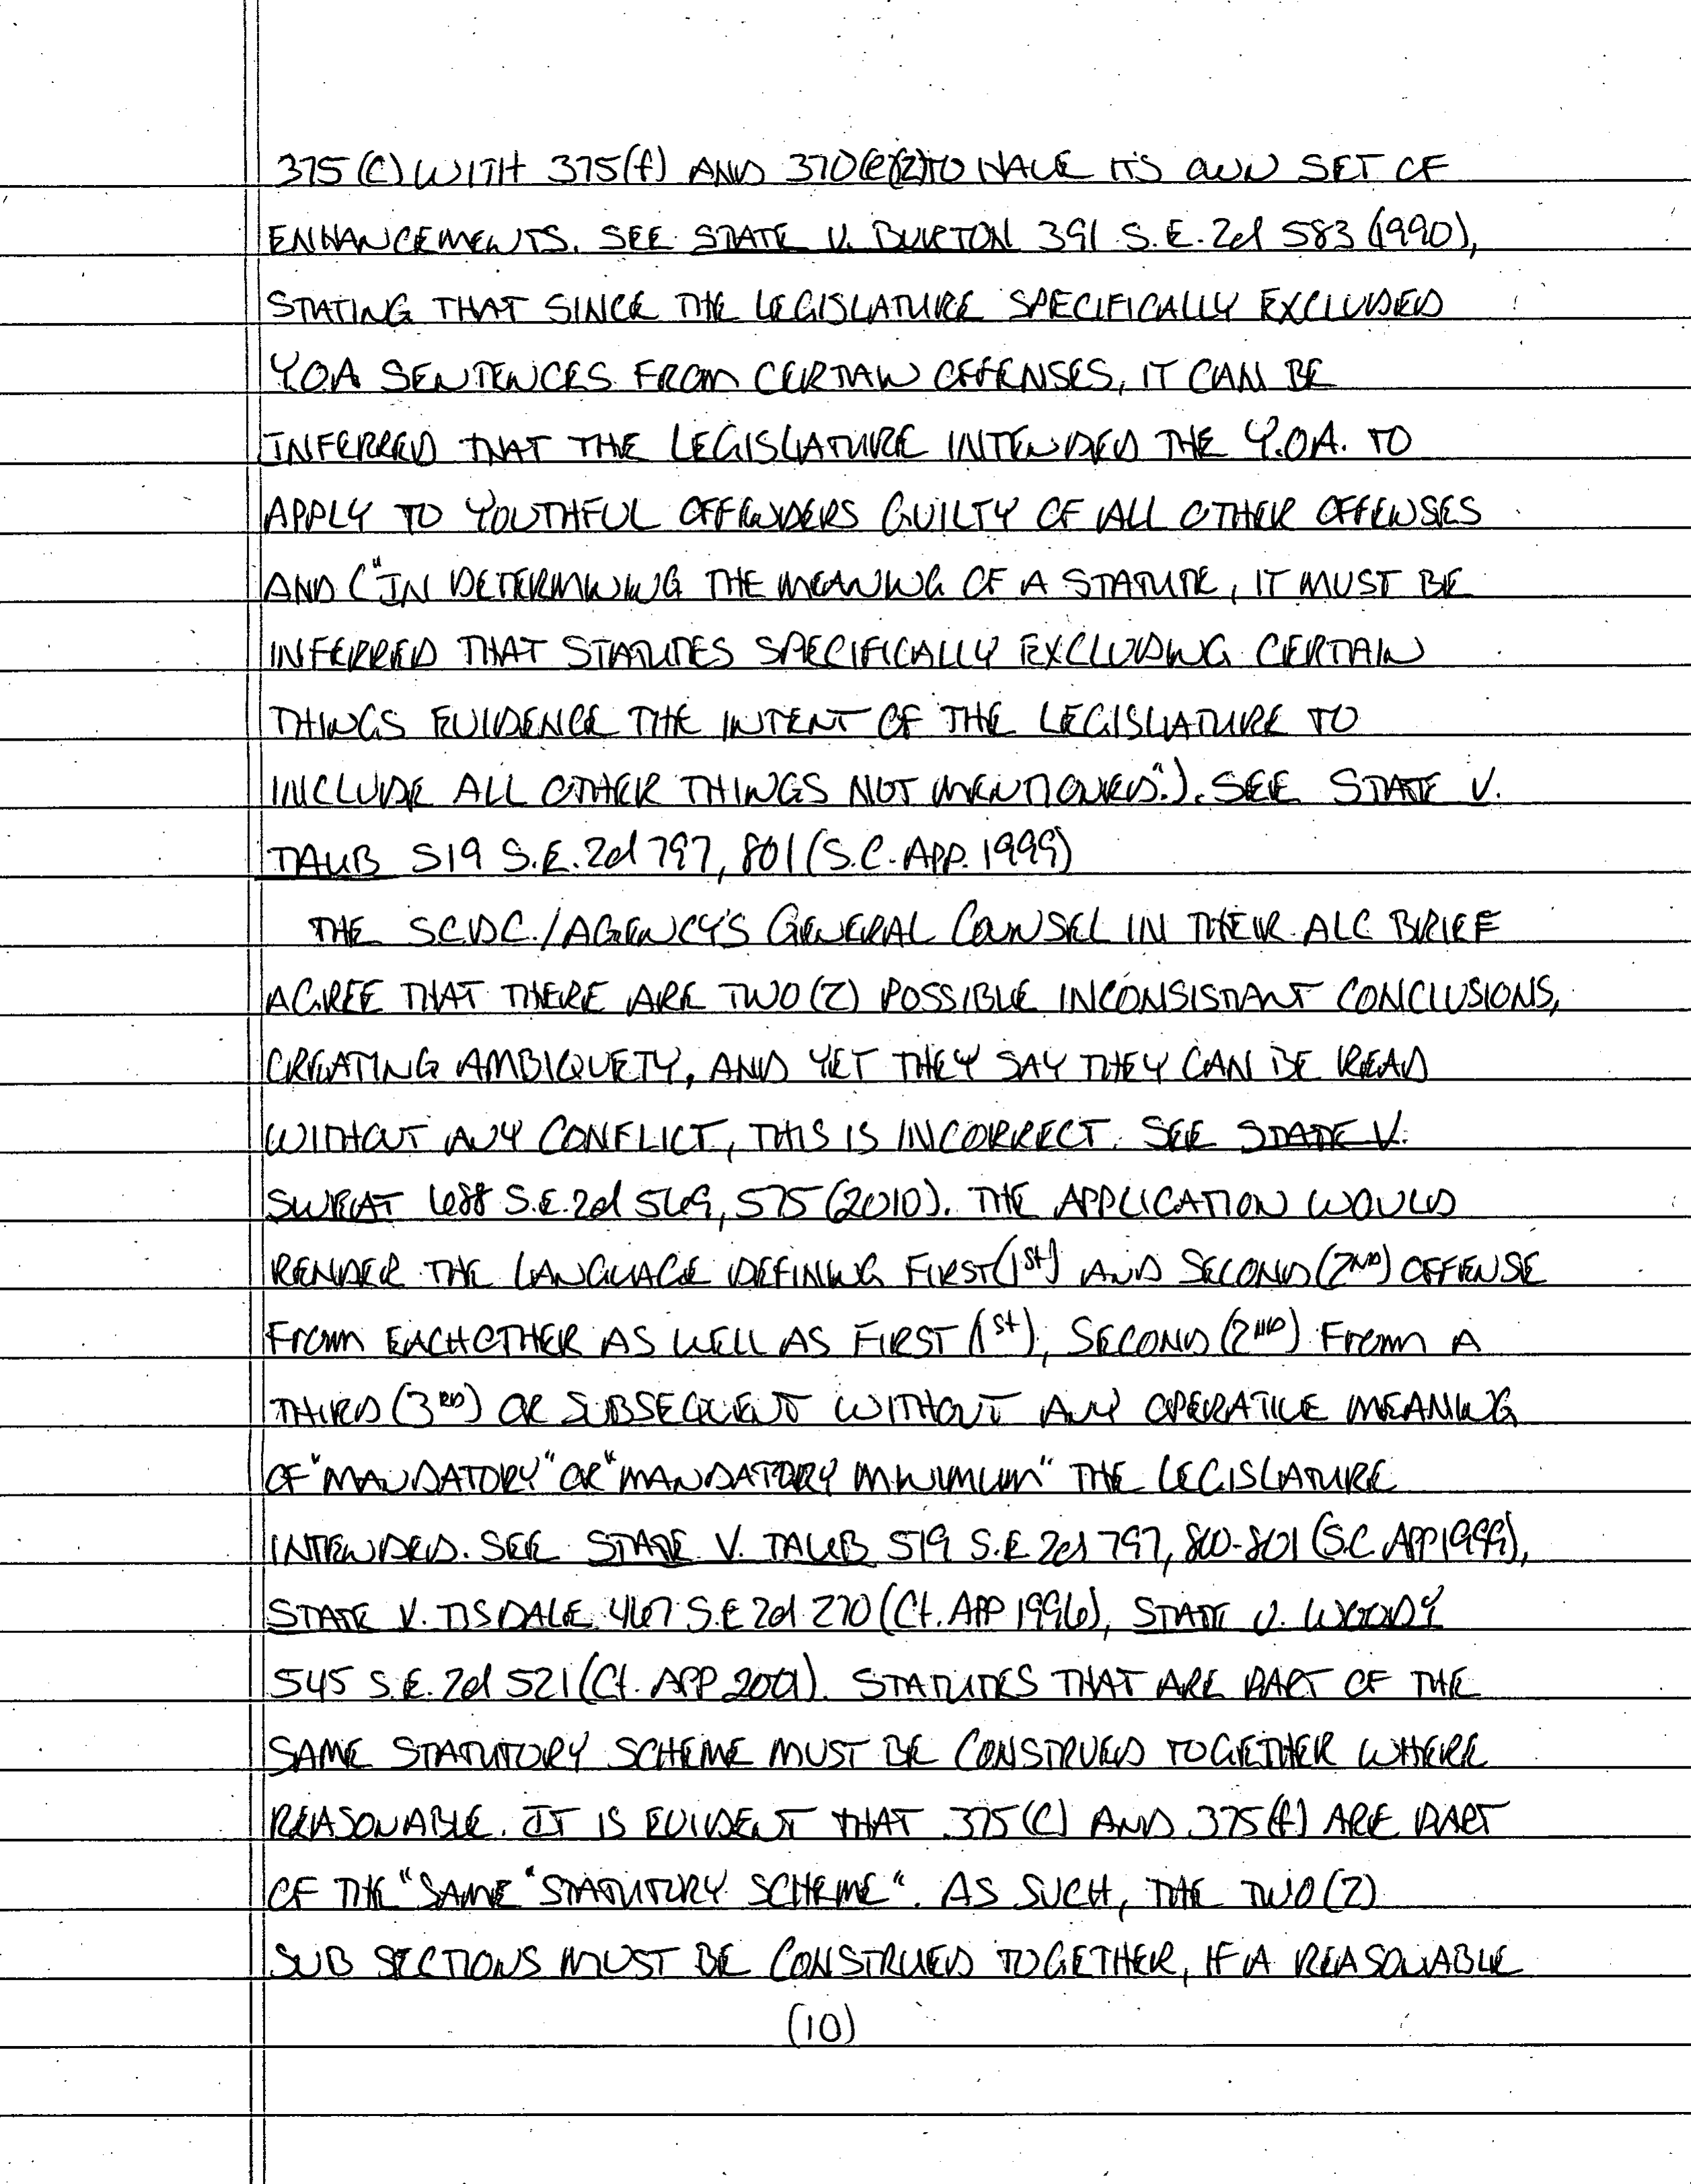 375 (C) WITH 375(f) AND 370(e)(2) TO HAVE ITS OWN SET OF
ENHANCEMENTS. SEE STATE V. BURTON 391 S.E.2d 583 (1990),
STATING THAT SINCE THE LEGISLATURE SPECIFICALLY EXCLUDED
Y.O.A SENTENCES FROM CERTAIN OFFENSES, IT CAN BE
INFERRED THAT THE LEGISLATURE INTENDED THE Y.O.A. TO
APPLY TO YOUTHFUL OFFENDERS GUILTY OF ALL OTHER OFFENSES
AND ("IN DETERMINING THE MEANING OF A STATUTE, IT MUST BE
INFERRED THAT STATUTES SPECIFICALLY EXCLUDING CERTAIN
THINGS EVIDENCE THE INTENT OF THE LEGISLATURE TO
INCLUDE ALL OTHER THINGS NOT MENTIONED."). SEE STATE V.
TAUB 519 S.E.2d 797, 801 (S.C. APP. 1999)
THE SCDC./AGENCY'S GENERAL COUNSEL IN THEIR ALC BRIEF
AGREE THAT THERE ARE TWO (2) POSSIBLE INCONSISTANT CONCLUSIONS,
CREATING AMBIQUETY, AND YET THEY SAY THEY CAN BE READ
WITHOUT ANY CONFLICT, THIS IS INCORRECT. SEE STATE V.
SWEAT 688 S.E.2d 569, 575 (2010). THE APPLICATION WOULD
RENDER THE LANGUAGE DEFINING FIRST (1St) AND SECOND (2ND) OFFENSE
FROM EACHOTHER AS WELL AS FIRST (1St), SECOND (2ND) FROM A
THIRD (3RD) OR SUBSEQUENT WITHOUT ANY OPERATIVE MEANING
OF "MANDATORY" OR "MANDATORY MINIMUM" THE LEGISLATURE
INTENDED. SEE STATE V. TAUB 519 S.E 2d 797, 800-801 (S.C. APP 1999),
STATE V. TISDALE 467 S.E 2d 270 (Ct. APP 1996), STATE V. WOODY
545 S.E. 2d 521 (Ct. APP 2001). STATUTES THAT ARE PART OF THE
SAME STATUTORY SCHEME MUST BE CONSTRUED TOGETHER WHERE
REASONABLE. IT IS EVIDENT THAT 375 (C) AND 375 (f) ARE PART
OF THE "SAME "STATUTORY SCHEME". AS SUCH, THE TWO (2)
SUB SECTIONS MUST BE CONSTRUED TOGETHER, IF A REASONABLE
(10)